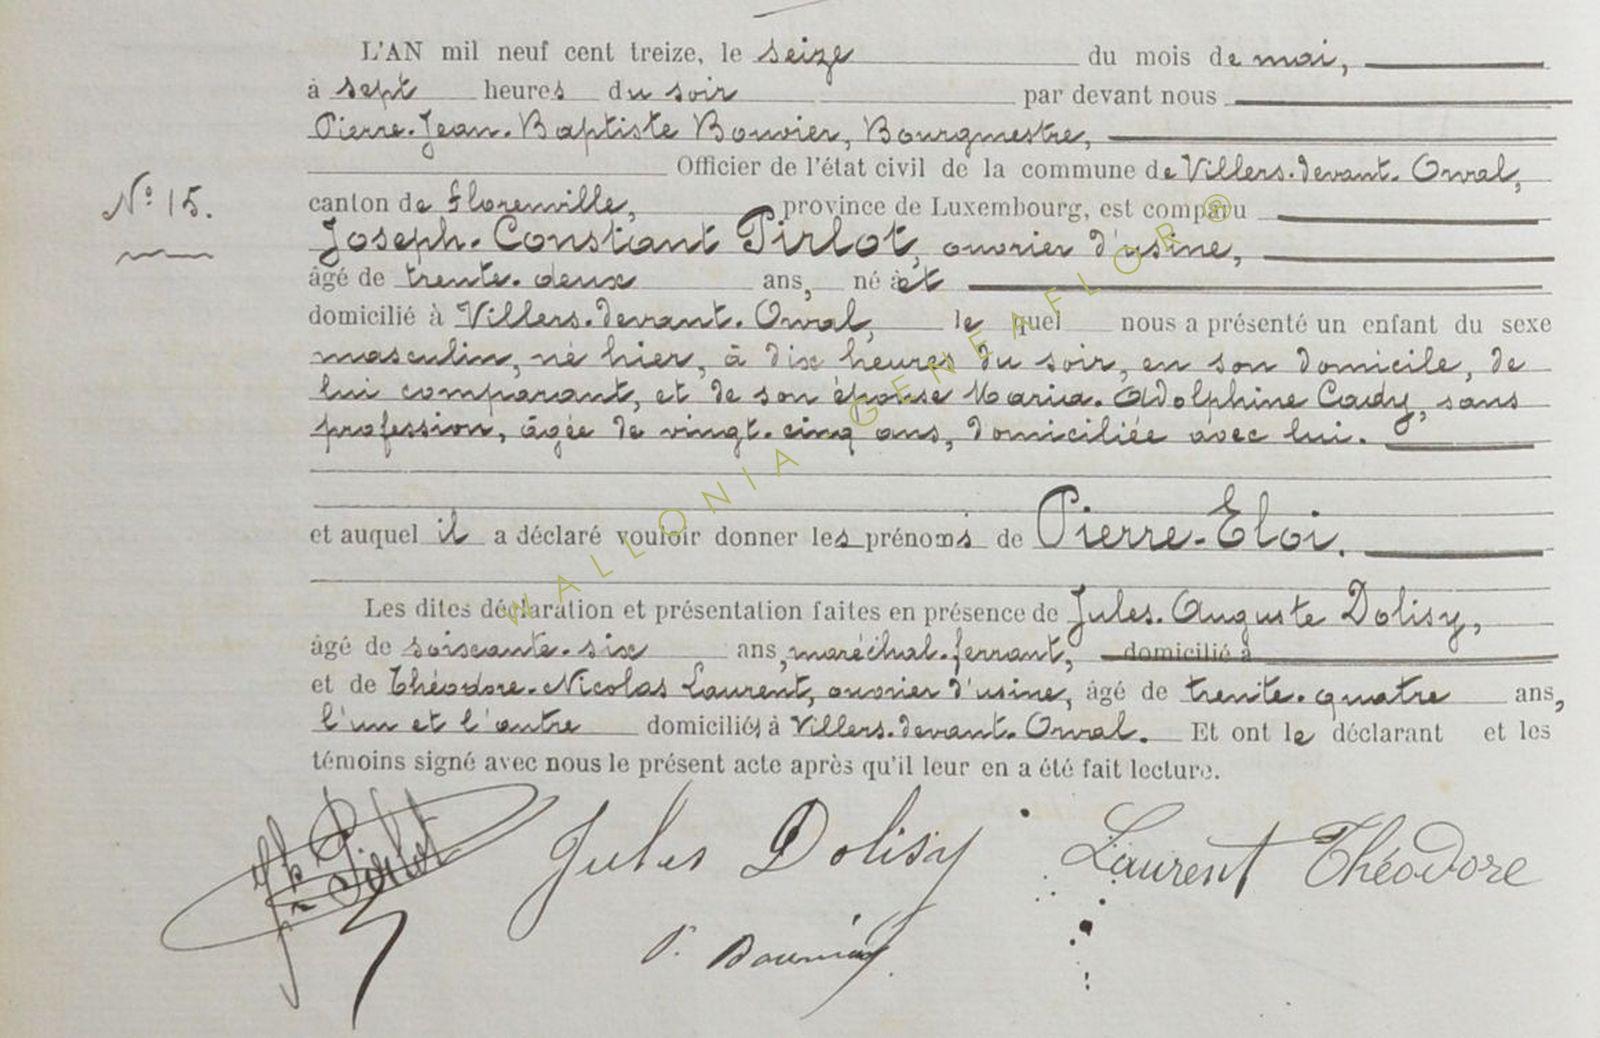 L'AN mil neuf cent treize, le seize du mois de mai,
à sept heures du soir par devant nous
Pierre-Jean-Baptiste Bouvier, Bourgmestre,
Officier de l'état civil de la commune de Villers-devant-Orval,
N° 15.
canton de Florenville, province de Luxembourg, est comparu
Joseph-Constant Pirlot, ouvrier d'usine,
âgé de trente-deux ans, né à et
domicilié à Villers-devant-Orval, le quel nous a présenté un enfant du sexe
masculin, né hier, à dix heures du soir, en son domicile, de
lui comparant, et de son épouse Maria-Adolphine Cady, sans
profession, âgée de vingt-cinq ans, domiciliée avec lui.
et auquel il a déclaré vouloir donner les prénoms de Pierre-Eloi.
Les dites déclaration et présentation faites en présence de Jules-Auguste Dolisy,
âgé de soixante-six ans, maréchal-ferrant, domicilié à
et de Théodore-Nicolas Laurent, ouvrier d'usine, âgé de trente-quatre ans,
l'un et l'autre domiciliés à Villers-devant-Orval. Et ont le déclarant et les
témoins signé avec nous le présent acte après qu'il leur en a été fait lecture.
Pirlot Jules Dolisy Laurent Théodore
P. Bouvier
WALLONIA GENEAFLOR ®